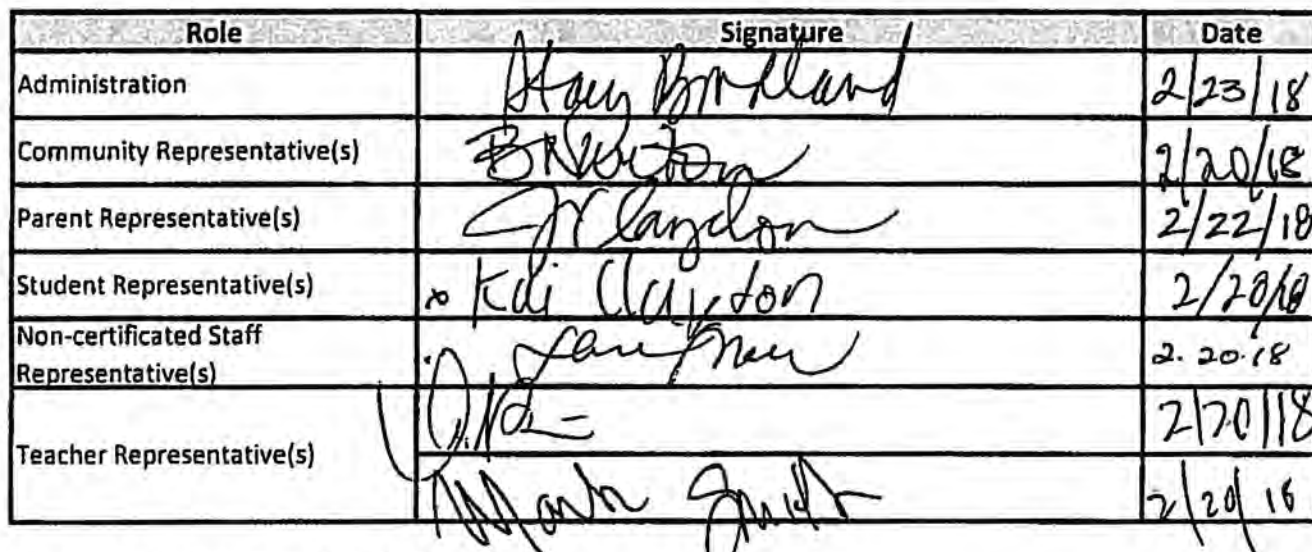 Role Signature Date
Administration 2/23/18
Community Representative(s) 2/20/18
Parent Representative(s) 2/22/18
Student Representative(s) Kai Clayton 2/20/18
Non-certificated Staff
Representative(s) 2.20.18
2/20/18
Teacher Representative(s)
Mark Smith 2/20/18